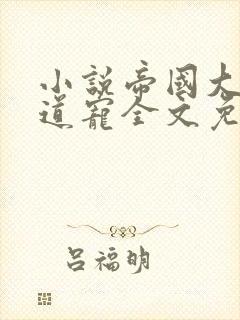 小說帝國大
道寵全文免
呂福明